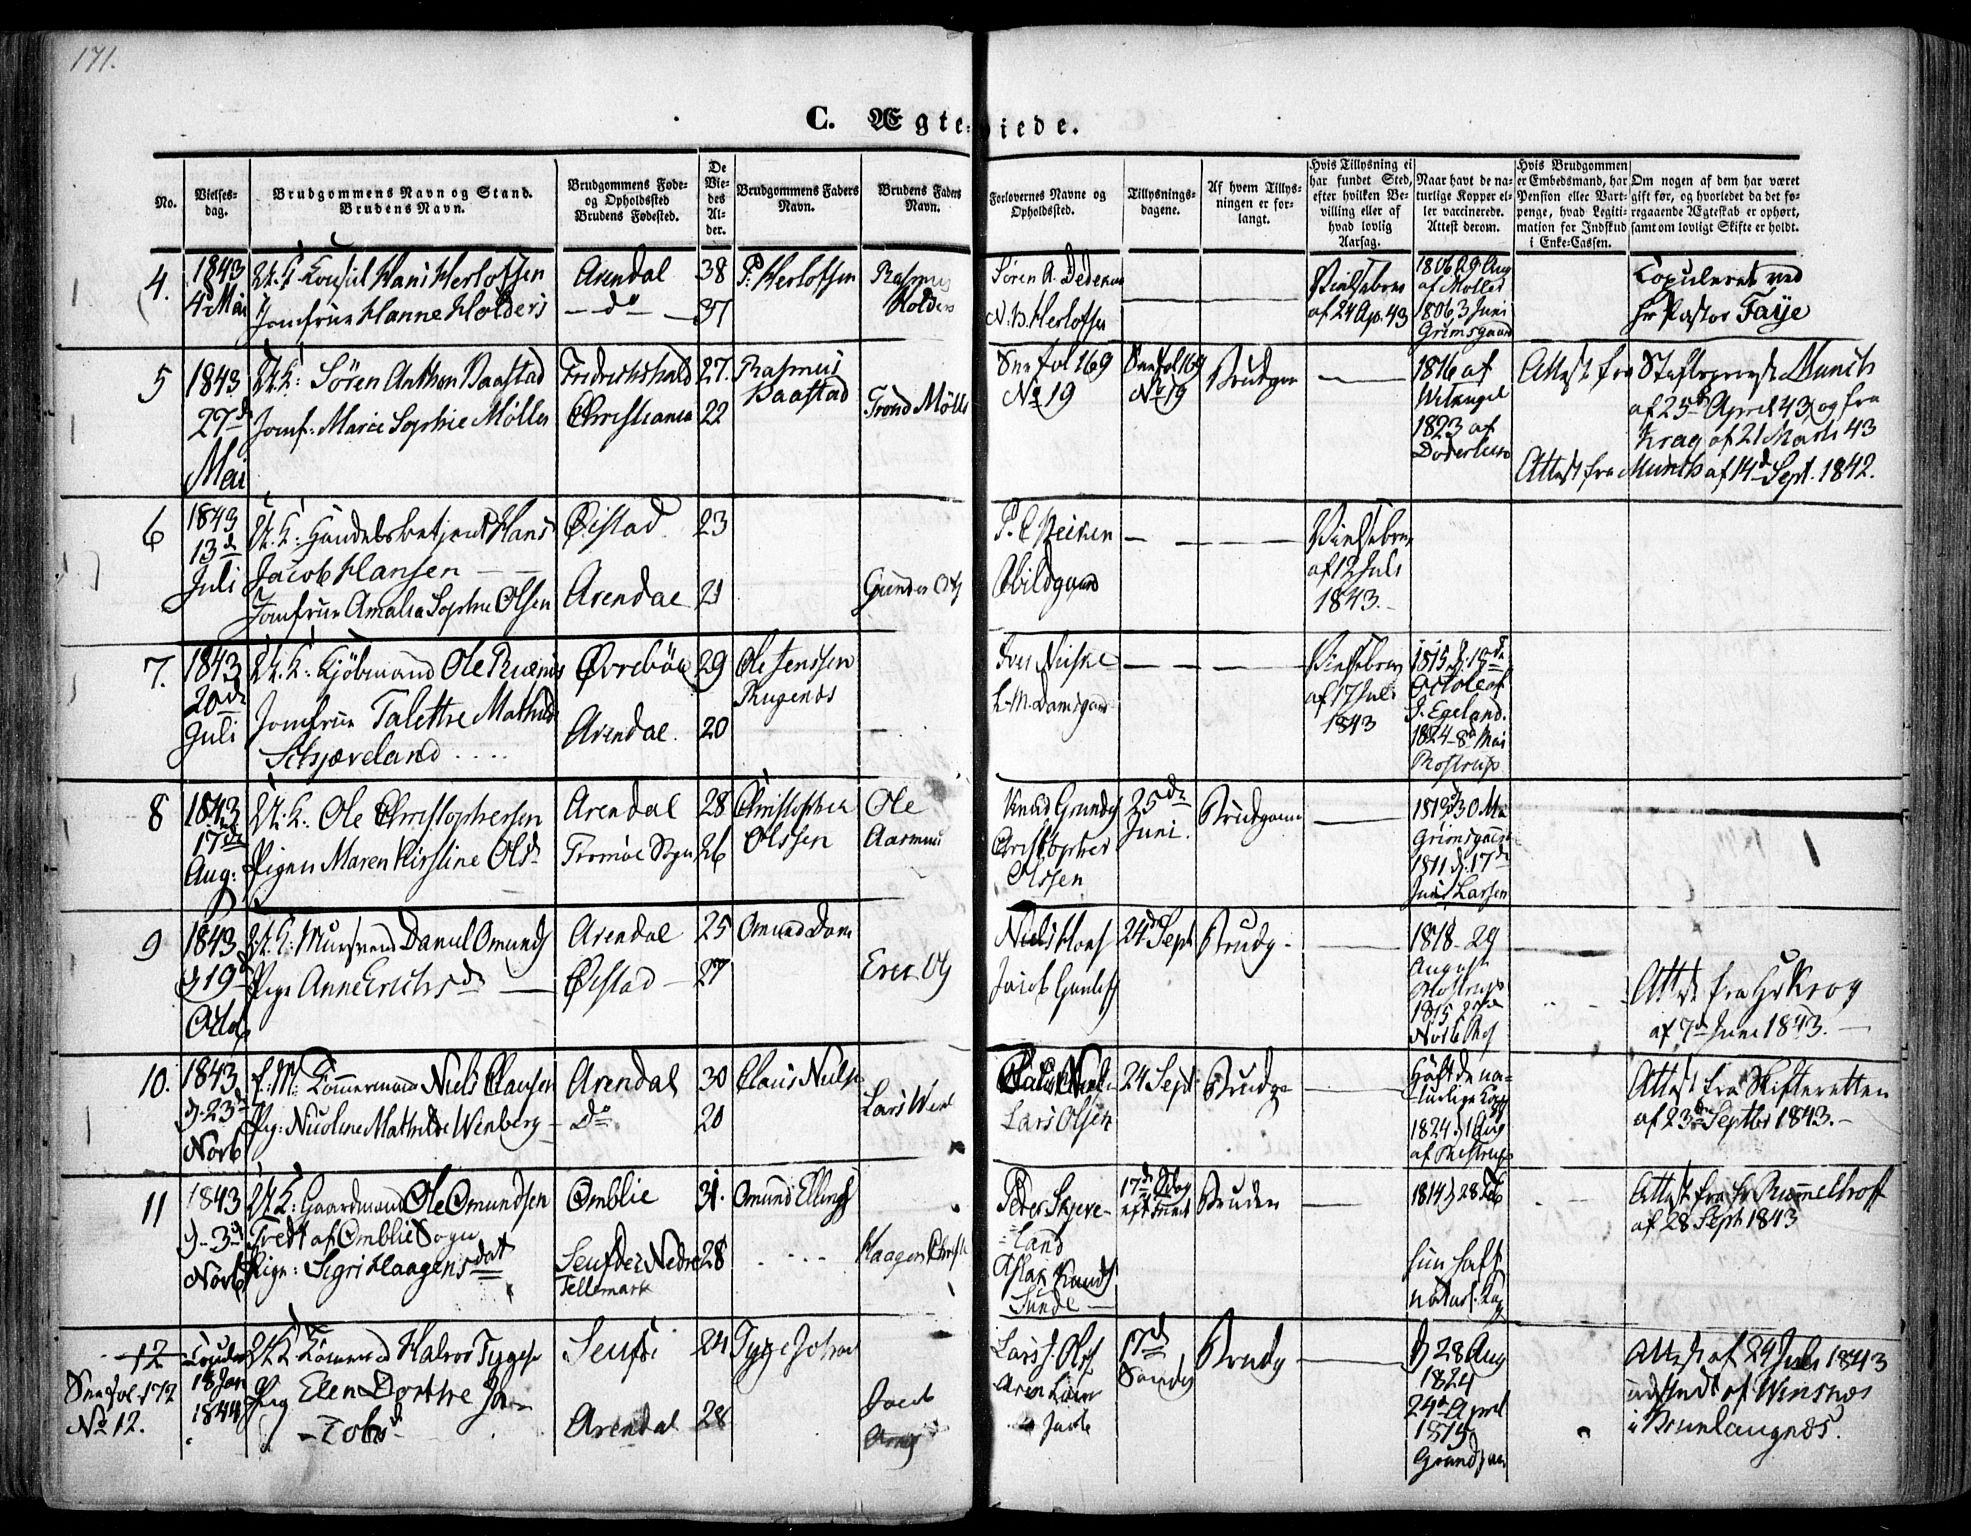 171.
C. Ægteviede.
No.
Vielses-
dag.
Brudgommens Navn og Stand.
Brudens Navn.
Brudgommens Føde-
og Opholdssted
Brudens Fødested.
De
Vie-
des
Al-
der.
Brudgommens Faders
Navn.
Brudens Faders
Navn.
Forlovernes Navne og
Opholdssted.
Tillysnings-
dagene.
Af hvem Tillys-
ningen er for-
langt.
Hvis Tillysning ei
har fundet Sted,
efter hvilken Be-
villing eller af
hvad lovlig
Aarsag.
Naar havt de na-
turlige Kopper el-
ler vaccinerede.
Attest derom.
Hvis Brudgommen
er Embedsmand, har
Pension eller Vart-
penge, hvad Legiti-
mation for Indskud
i Enke-Cassen.
Om nogen af dem har været
gift før, og hvorledet da det fo-
regaaende Ægteskab er ophørt,
samt om lovligt Skifte er holdt.
4.
1843
4 Mai
U. K. Consul Hans Herlofsen
Jomfrue Hanne Holders
Arendal
— do —
38
37
P. Herlofsen
Rasmus
Holders
Søren A.
N. B. Herlofsen
Vielsebrev
af 24 Ap. 43
1806 29 Aug
af Møller
1806 3 Juni
Grimsgaard
Copuleret ved
Hr Pastor Faÿe
5
1843
27de
Mai
U. K: Søren Anthon Baastad
Jomf: Marie Sophie Møller
Fredrikshald
Christiania
27.
22
Rasmus
Baastad
Trond Møller
See fol 169
No 19
See fol 169
No 19
Brudgom
1816 af
1823 af
Attest fra Stiftsprovst Munch
af 25de April 43 og fra
Krag af 21 Marts 43
Attest fra Munch af 14de Sept. 1842.
6
1843
13de
Juli
U. K: Handelsbetjent Hans
Jacob Hansen
Jomfrue Amalia Sophie Olsen
Øistad
Arendal
23
21
Gunder
Vielsebrev
af 12 Juli
1843.
7.
1843
20de
Juli
U. K: Kjøbmand Ole
Jomfrue Talette Mathilde
Stsjæveland
Øvrebøe
Arendal.
29
20
Ole Jenssen
Vielsebrev
af 17 Juli
1843
1815 d. 19de
Octob af
J. Egeland.
1824 - 8de Mai
Rostrup
8
1843
17de
Aug:
U. K: Ole Christophersen
Pigen Maren Kirstine Olsd
Arendal
Tromøe Sogn
28
26
Christopher
Olssen
Ole
Aasmund
Knud
Christopher
Olssen
25de
Juni.
Brudgom
1811 d. 17de
Juni Larsen
9
1843
d 19de
Octob
U. K: Muursvend Daniel Omunds
Pige Anne Erichsd
Arendal
Øistad
25
27
Omund
Eric
Niels
Jacob
24de Sept
Brudg
1818 - 29
August
Rostrup
1815
Attest fra Hr Krog
af 7de Juni 1843.
10.
1843
d. 23de
Novb
E. M: Tømmermand Niels Clausen
Pig: Nicoline Mathilde Wenberg
Arendal
Do
30
20
Claus Niels
Lars Wen
Lars Olsen
24 Sept
Brudg
Haft de na-
turlige Kopp
1824 d 1 Aug
af Rostrup
Attest fra Skifteretten
af 23de Septbr 1843.
11
1843
d. 3de
Novb
U. K: Gaardmand Ole Omundsen
Tvedt af Omblie Sogn
Pige: Sigri Haagensdat
Omblie
Seufde i Nedre
Tellemark
31.
28
Omund Ellings
Haagen Christ
Peder Skjeve-
land
Aslax Knuds
Sunde
17de
Bruden
1814 d 28 Feb
hun haft
naturl. Kop
Attest fra Hr Rummelhoff
af 28 Sept 1843
12
See fol 172
No 12.
Copuleret
18 Jan
1844
U. K. Tømmermd Halvor Tygesen
Pig Elen Dorthe Ja-
cobsd
Seufde
Arendal
24
28
Tyge Johan
Jacob
Lars J. Ols
17de
Søndag
Brudg
d 28 Aug
1824
24de April
1815
Attest af 24 Juli 1843
udstedt af Winsnes
i Brunlaugnæs.